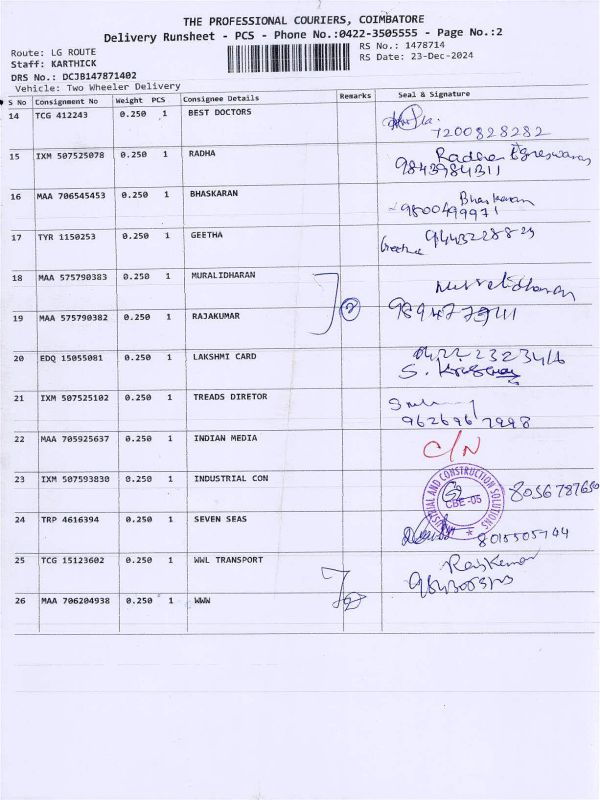 THE PROFESSIONAL COURIERS, COIMBATORE
Delivery Runsheet - PCS - Phone No.:0422-3505555 - Page No.:2
Route: LG ROUTE
RS No.: 1478714
Staff: KARTHICK
RS Date: 23-Dec-2024
DRS No.: DCJB147871402
Vehicle: Two Wheeler Delivery
S No Consignment No Weight PCS Consignee Details Remarks Seal & Signature
14 TCG 412243 0.250 1 BEST DOCTORS
7200828282
15 IXM 507525078 0.250 1 RADHA Radha
9843984311
16 MAA 706545453 0.250 1 BHASKARAN Bhaskaran
9800499971
17 TYR 1150253 0.250 1 GEETHA Geetha
18 MAA 575790383 0.250 1 MURALIDHARAN Muralidharan
19 MAA 575790382 0.250 1 RAJAKUMAR 2
20 EDQ 15055081 0.250 1 LAKSHMI CARD
S.
21 IXM 507525102 0.250 1 TREADS DIRETOR
9626967998
22 MAA 705925637 0.250 1 INDIAN MEDIA C/N
23 IXM 507593830 0.250 1 INDUSTRIAL CON INDUSTRIAL AND CONSTRUCTION SOLUTIONS CBE-05 8056787650
24 TRP 4616394 0.250 1 SEVEN SEAS
25 TCG 15123602 0.250 1 WWL TRANSPORT RajKumar
26 MAA 706204938 0.250 1 WWW